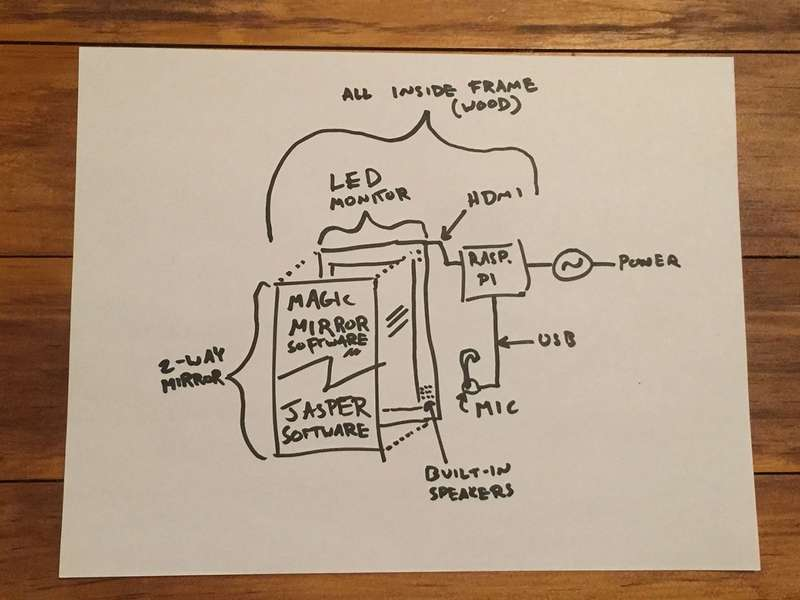 ALL INSIDE FRAME
(WOOD)
LED
MONITOR
HDMI
RASP.
PI
POWER
MAGIC
MIRROR
SOFTWARE
2-WAY
MIRROR
USB
JASPER
SOFTWARE
MIC
BUILT-IN
SPEAKERS